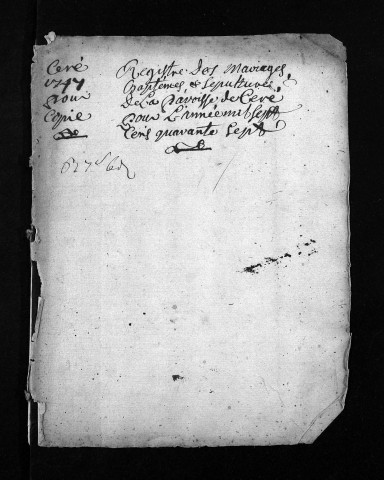 Ceré
1747
pour
Copie
Registre Des Mariages,
Baptêmes et Sépultures,
De La Paroisse de Ceré
Pour L'année mil Sept
Cens quarante Sept